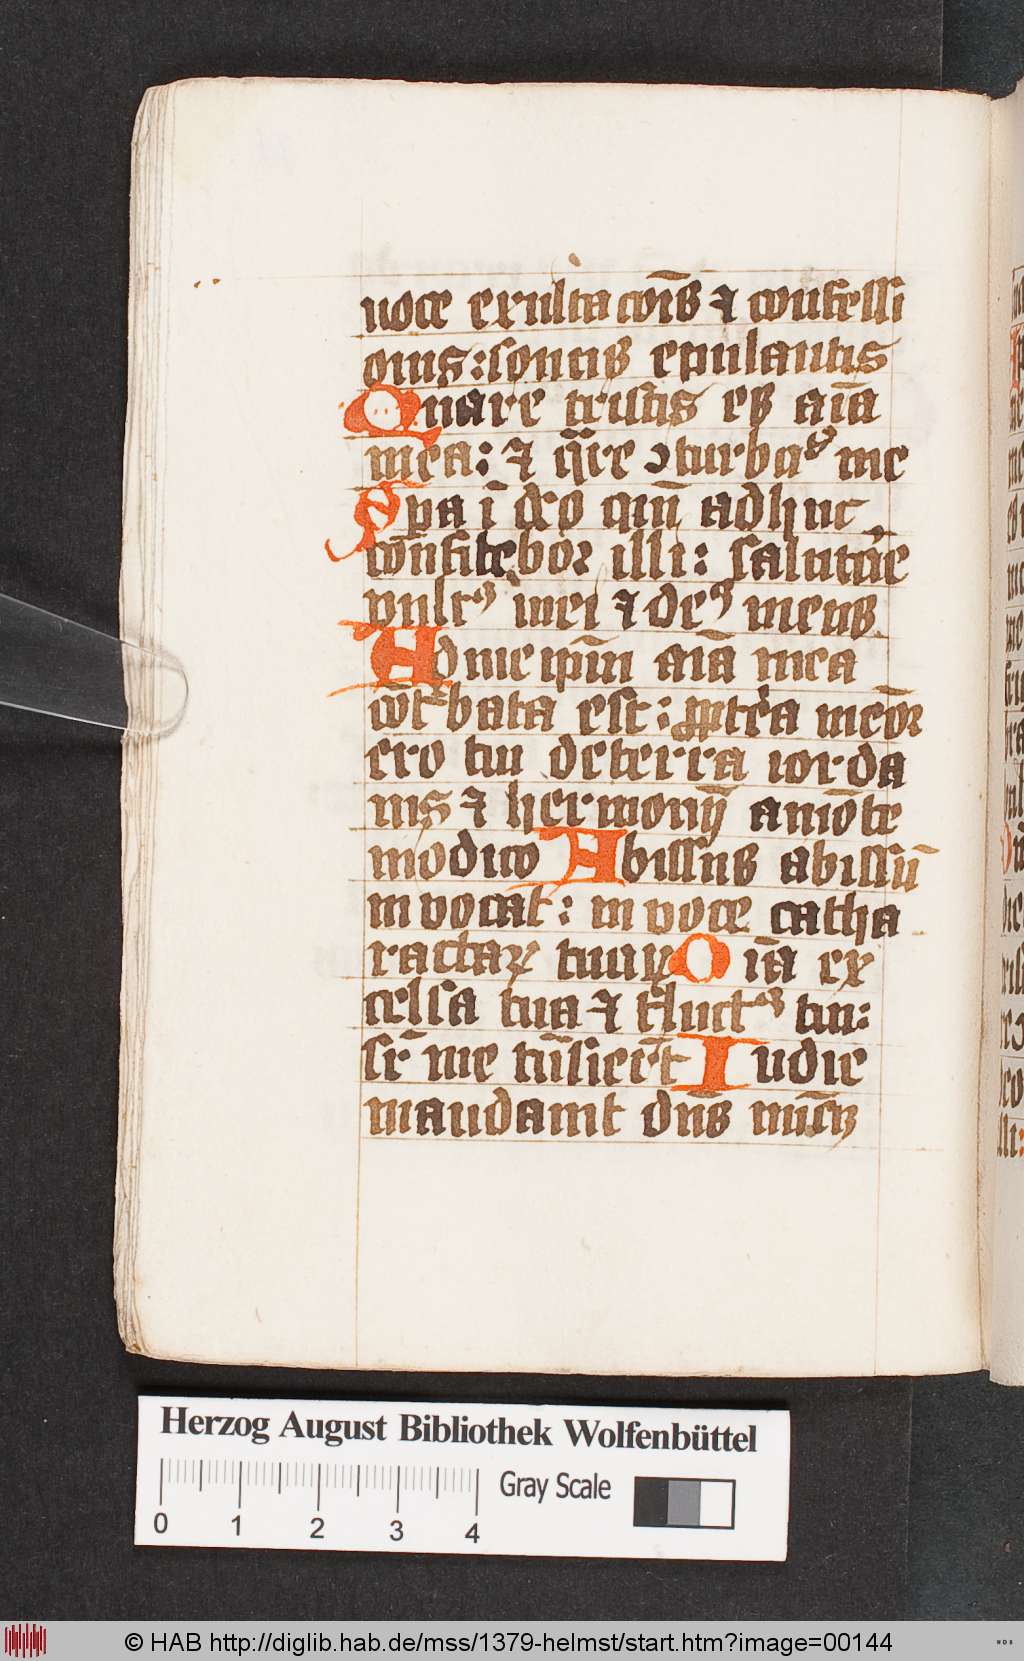 voce exultacōīs ⁊ confessi
onis: sonus epulantis
Quare tristis es aīa
mea: ⁊ q̄re ↄturbas me
Spa ī deo qm̄ adhuc
cōnfitebor illi: salutar̄e
vultꝰ mei ⁊ deꝰ meus
Ad me ipm̄ aīa mea
cōt͛bata est: ꝓpterea meōr
ero tui de terra iorda
nis ⁊ hermonij a mōte
modico Abissus abissū
in vocat: in voce catha
ractaꝝ tuaꝝ Oīa ex
celsa tua ⁊ fluctꝰ tui:
sr̄ me tn̄sier̄t In die
mandauit dn̄s mīcā
Herzog August Bibliothek Wolfenbüttel
Gray Scale
0 1 2 3 4
© HAB http://diglib.hab.de/mss/1379-helmst/start.htm?image=00144